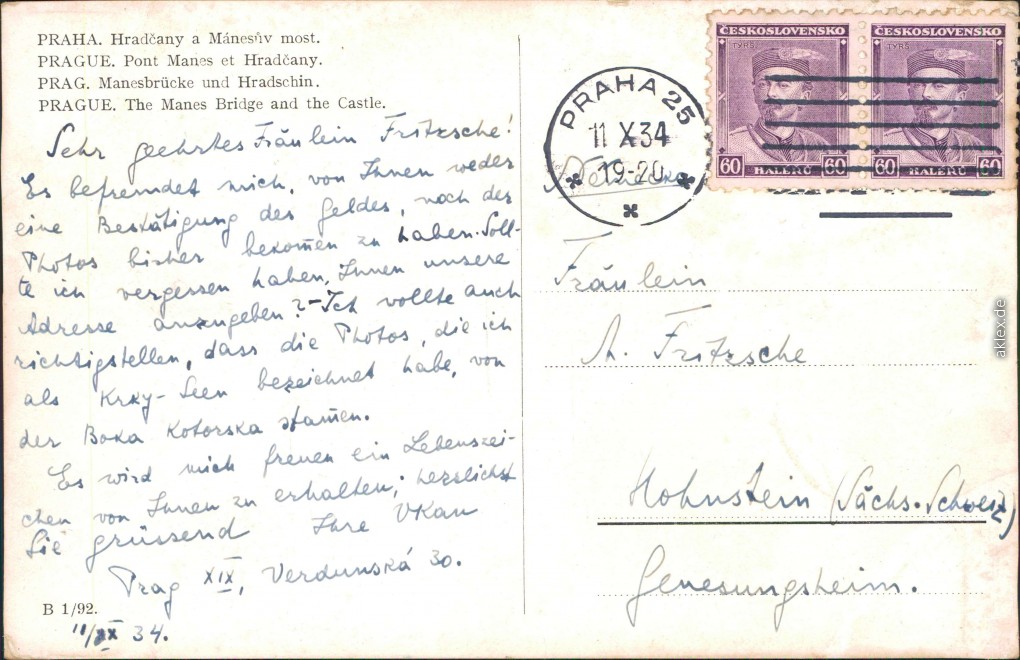 PRAHA. Hradčany a Mánesův most.
PRAGUE. Pont Manes et Hradčany.
PRAG. Manesbrücke und Hradschin.
PRAGUE. The Manes Bridge and the Castle.
Sehr geehrtes Fräulein Fritzsche!
Es befremdet mich, von Ihnen weder
eine Bestätigung des Geldes, noch der
Photos bisher bekom̄en zu haben. Soll-
te ich vergessen haben, Ihnen unsere
Adresse anzugeben? - Ich wollte auch
richtigstellen, dass die Photos, die ich
als Krky-Seen bezeichnet habe, von
der Boka Kotorska stam̄en.
Es wird mich freuen ein Lebenszei-
chen von Ihnen zu erhalten; herzlichst
Sie grüssend Ihre VKan
Prag XIX, Verdunská 30.
B 1/92.
11/X 34.
PRAHA 25
11 X 34
19-20
ČESKOSLOVENSKO
TYRŠ
60 HALÉŘŮ 60
ČESKOSLOVENSKO
TYRŠ
60 HALÉŘŮ 60
Fräulein
A. Fritzsche
Hohnstein (Sächs. Schweiz)
Genesungsheim.
aklex.de